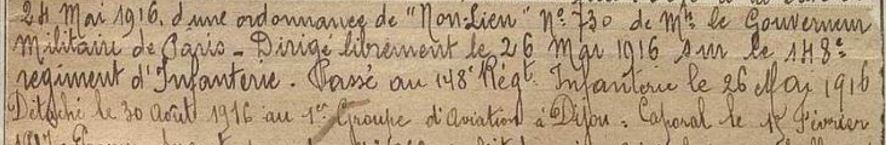 24 Mai 1916, d'une ordonnance de "Non-Lieu" N° 730 de Mr. le Gouverneur
Militaire de Paris - Dirigé librement le 26 Mai 1916 sur le 148e
régiment d'Infanterie. Passé au 148e Régt. Infanterie le 26 Mai 1916
Détaché le 30 Août 1916 au 1er Groupe d'Aviation à Dijon. Caporal le 15 Février